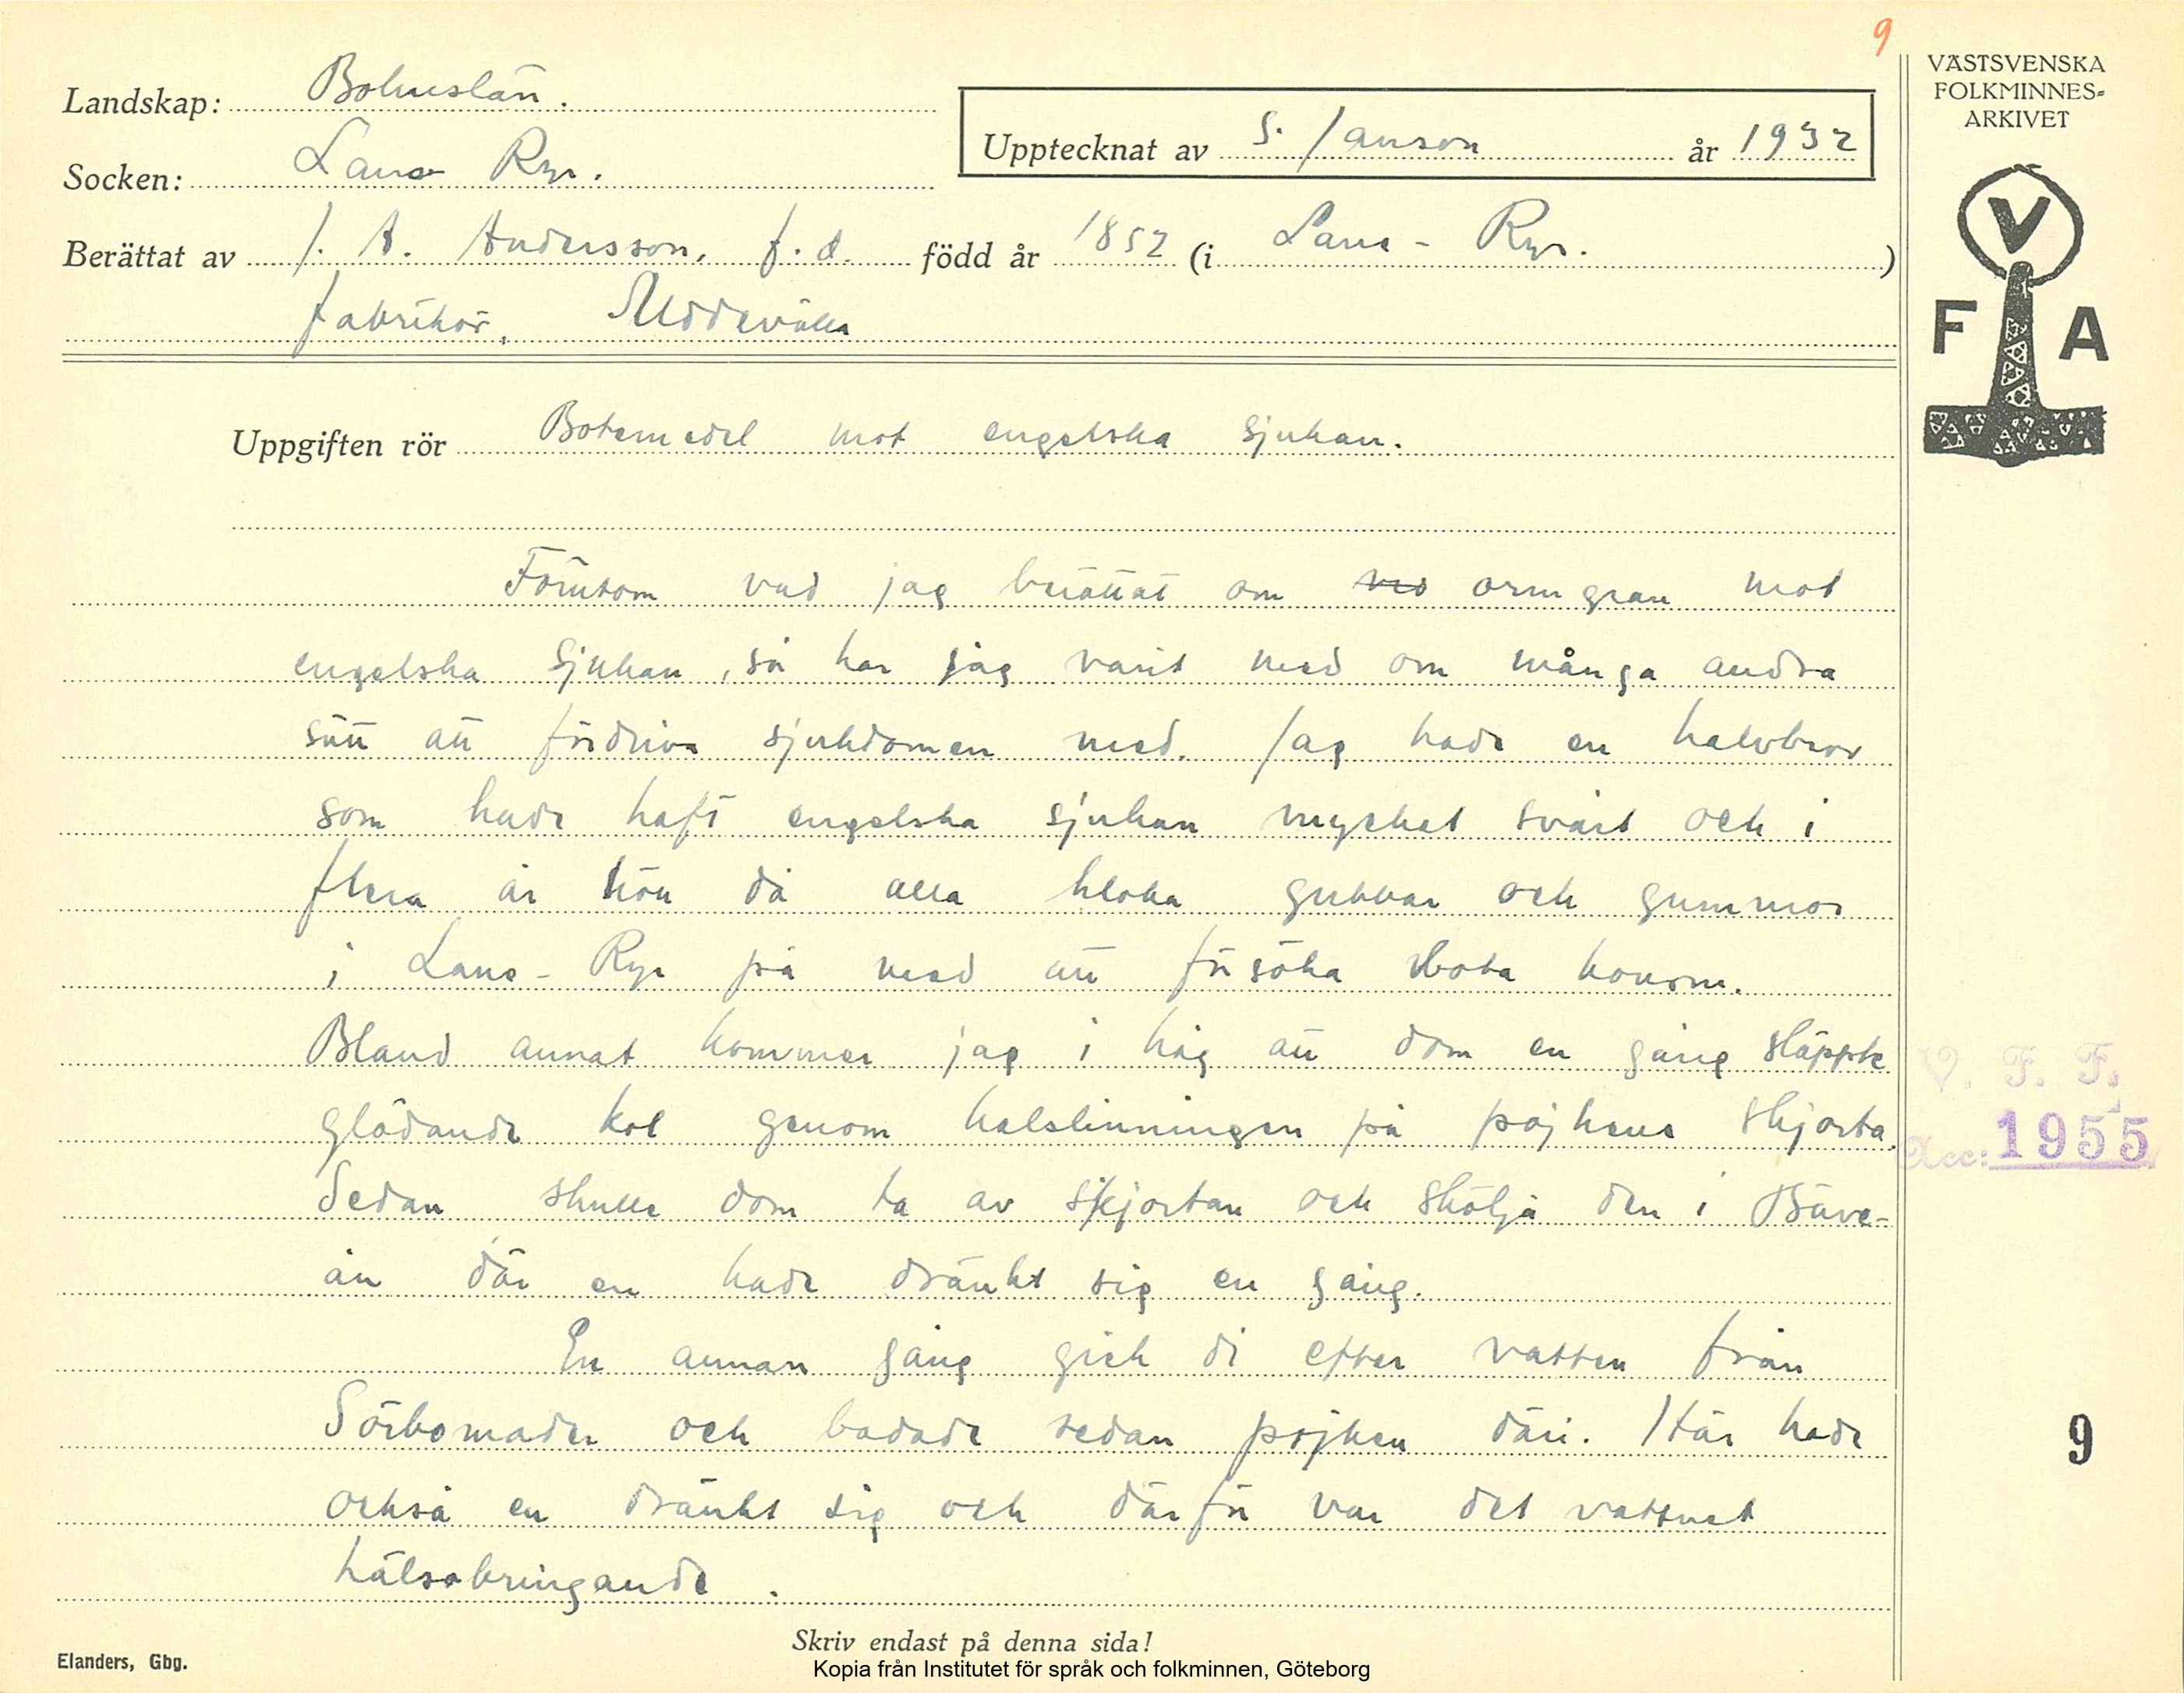 9
VÄSTSVENSKA
FOLKMINNES-
ARKIVET
Landskap: Bohuslän.
Upptecknat av S. Janson år 1932
Socken: Lane Ryr.
Berättat av J. A. Andersson, f.d. född år 1852 (i Lane-Ryr.)
fabrikör, Uddevalla
V
F A
Uppgiften rör Botemedel mot engelska sjukan.
Förutom vad jag berättat om orm gran mot
engelska sjukan, så har jag varit med om många andra
sätt att fördriva sjukdomen med. Jag hade en halvbror
som hade haft engelska sjukan mycket svårt och i
flera år höll då alla kloka gubbar och gummor
i Lane-Ryr på med att försöka bota honom.
Bland annat kommer jag i håg att dom en gång släppte
glödande kol genom halslinningen på pojkens skjorta.
Sedan skulle dom ta av skjortan och skölja den i Bäve-
ån där en hade dränkt sig en gång.
En annan gång gick di efter vatten från
Sörbomader och badade sedan pojken däri. Här hade
också en dränkt sig och därför var det vattnet
hälsobringande.
V. F. F.
Acc: 1955
9
Skriv endast på denna sida!
Elanders, Gbg.
Kopia från Institutet för språk och folkminnen, Göteborg